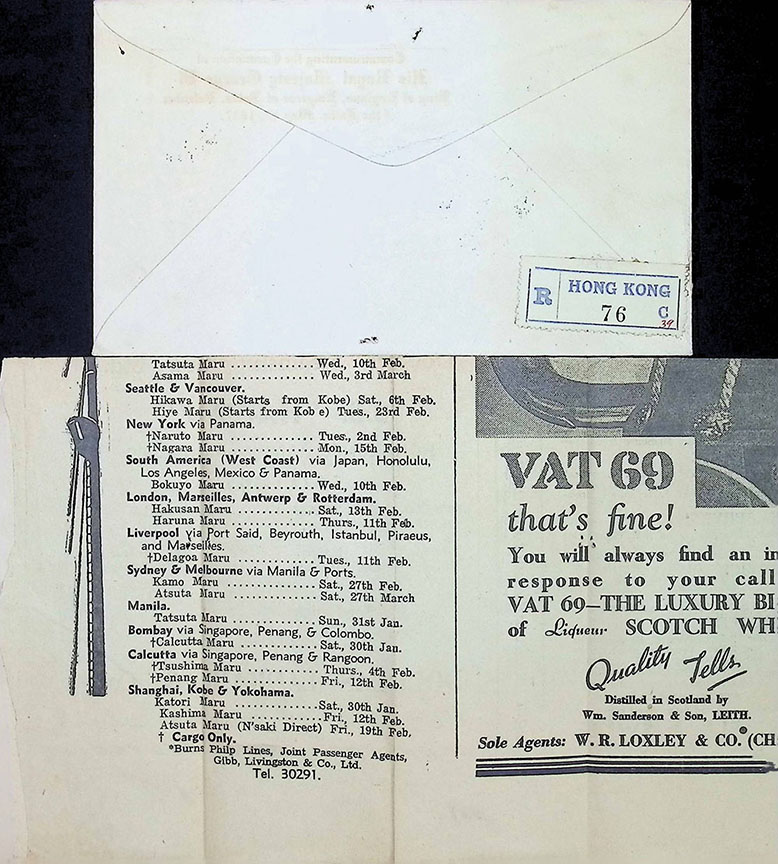 R HONG KONG
76 C
39
Tatsuta Maru .............. Wed., 10th Feb.
Asama Maru .............. Wed., 3rd March
Seattle & Vancouver.
Hikawa Maru (Starts from Kobe) Sat., 6th Feb.
Hiye Maru (Starts from Kob e) Tues., 23rd Feb.
New York via Panama.
†Naruto Maru .............. Tues., 2nd Feb.
†Nagara Maru .............. Mon., 15th Feb.
South America (West Coast) via Japan, Honolulu,
Los Angeles, Mexico & Panama.
Bokuyo Maru .............. Wed., 10th Feb.
London, Marseilles, Antwerp & Rotterdam.
Hakusan Maru .............. Sat., 13th Feb.
Haruna Maru .............. Thurs., 11th Feb.
Liverpool via Port Said, Beyrouth, Istanbul, Piraeus,
and Marseilles.
†Delagoa Maru .............. Tues., 11th Feb.
Sydney & Melbourne via Manila & Ports.
Kamo Maru .............. Sat., 27th Feb.
Atsuta Maru .............. Sat., 27th March
Manila.
Tatsuta Maru .............. Sun., 31st Jan.
Bombay via Singapore, Penang, & Colombo.
†Calcutta Maru .............. Sat., 30th Jan.
Calcutta via Singapore, Penang & Rangoon.
†Tsushima Maru .............. Thurs., 4th Feb.
†Penang Maru .............. Fri., 12th Feb.
Shanghai, Kobe & Yokohama.
Katori Maru .............. Sat., 30th Jan.
Kashima Maru .............. Fri., 12th Feb.
Atsuta Maru (N'saki Direct) Fri., 19th Feb.
† Cargo Only.
*Burns Philp Lines, Joint Passenger Agents,
Gibb, Livingston & Co., Ltd.
Tel. 30291.
VAT 69
that's fine!
You will always find an in
response to your call
VAT 69—THE LUXURY BI
of Liqueur SCOTCH WH
Quality Tells
Distilled in Scotland by
Wm. Sanderson & Son, LEITH.
Sole Agents: W. R. LOXLEY & CO. (CH